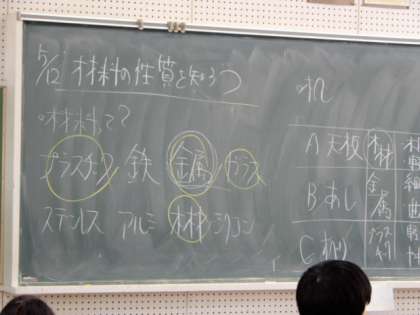 5/12 材料の性質を知ろう
・材料って?
プラスチック 鉄 金属 ガラス
ステンレス アルミ 木材 シリコン
・机
A 天板 木材
B あし 金属
C プラスチック